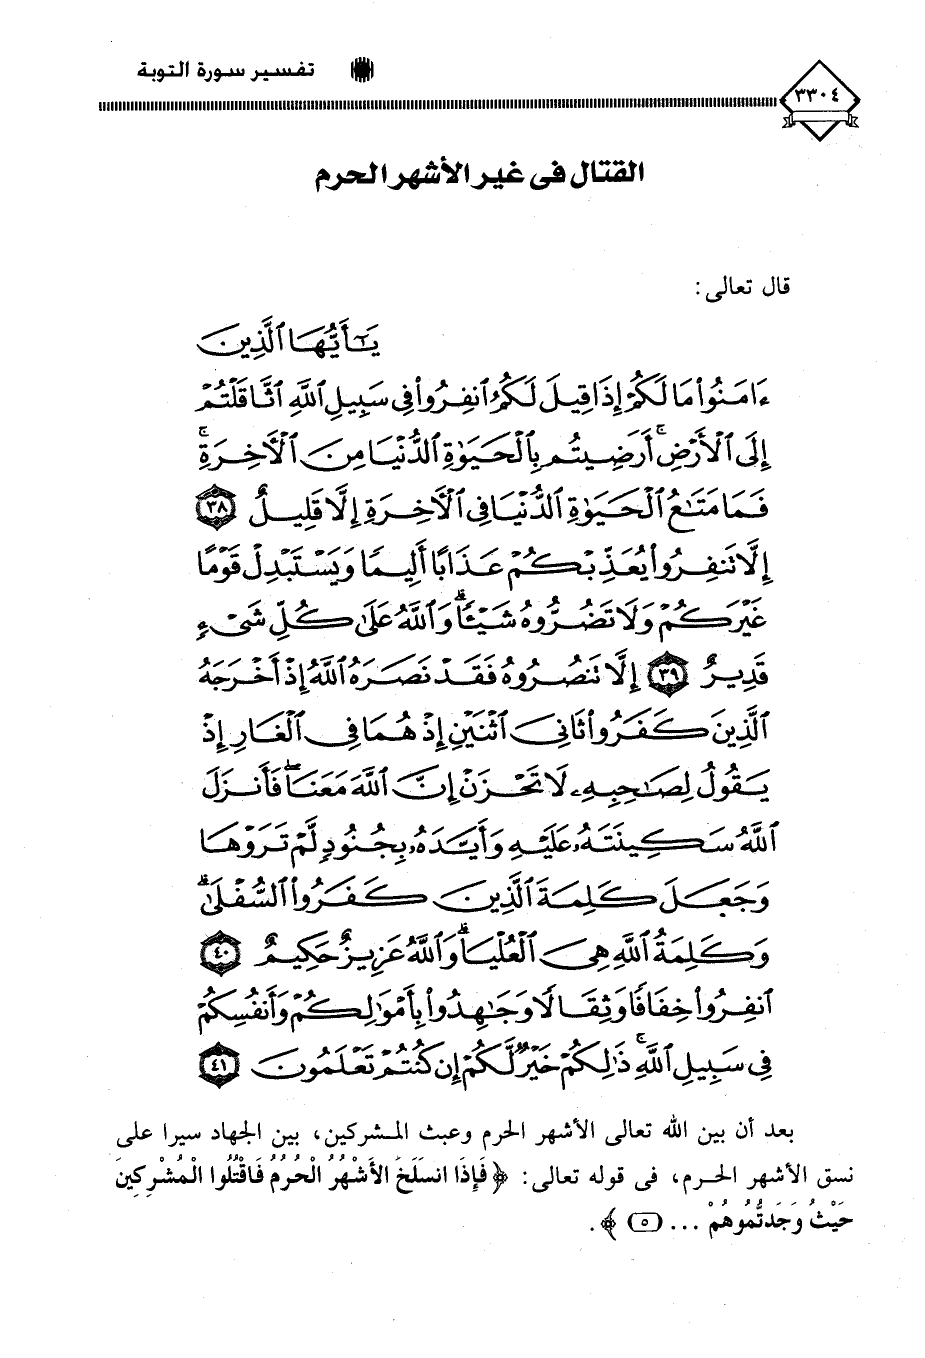 ٣٣٠٤
تفسير سورة التوبة
القتال فى غير الأشهر الحرم
قال تعالى:
يَٰٓأَيُّهَا ٱلَّذِينَ
ءَامَنُوا۟ مَا لَكُمْ إِذَا قِيلَ لَكُمُ ٱنفِرُوا۟ فِى سَبِيلِ ٱللَّهِ ٱثَّاقَلْتُمْ
إِلَى ٱلْأَرْضِ ۚ أَرَضِيتُم بِٱلْحَيَوٰةِ ٱلدُّنْيَا مِنَ ٱلْءَاخِرَةِ ۚ
فَمَا مَتَٰعُ ٱلْحَيَوٰةِ ٱلدُّنْيَا فِى ٱلْءَاخِرَةِ إِلَّا قَلِيلٌ ٣٨
إِلَّا تَنفِرُوا۟ يُعَذِّبْكُمْ عَذَابًا أَلِيمًا وَيَسْتَبْدِلْ قَوْمًا
غَيْرَكُمْ وَلَا تَضُرُّوهُ شَيْـًٔا ۗ وَٱللَّهُ عَلَىٰ كُلِّ شَىْءٍ
قَدِيرٌ ٣٩ إِلَّا تَنصُرُوهُ فَقَدْ نَصَرَهُ ٱللَّهُ إِذْ أَخْرَجَهُ
ٱلَّذِينَ كَفَرُوا۟ ثَانِىَ ٱثْنَيْنِ إِذْ هُمَا فِى ٱلْغَارِ إِذْ
يَقُولُ لِصَٰحِبِهِۦ لَا تَحْزَنْ إِنَّ ٱللَّهَ مَعَنَا ۖ فَأَنزَلَ
ٱللَّهُ سَكِينَتَهُۥ عَلَيْهِ وَأَيَّدَهُۥ بِجُنُودٍ لَّمْ تَرَوْهَا
وَجَعَلَ كَلِمَةَ ٱلَّذِينَ كَفَرُوا۟ ٱلسُّفْلَىٰ ۗ
وَكَلِمَةُ ٱللَّهِ هِىَ ٱلْعُلْيَا ۗ وَٱللَّهُ عَزِيزٌ حَكِيمٌ ٤٠
ٱنفِرُوا۟ خِفَافًا وَثِقَالًا وَجَٰهِدُوا۟ بِأَمْوَٰلِكُمْ وَأَنفُسِكُمْ
فِى سَبِيلِ ٱللَّهِ ۚ ذَٰلِكُمْ خَيْرٌ لَّكُمْ إِن كُنتُمْ تَعْلَمُونَ ٤١
بعد أن بين الله تعالى الأشهر الحرم وعبث المشركين، بين الجهاد سيرا على
نسق الأشهر الحرم، فى قوله تعالى: ﴿ فَإِذَا انسَلَخَ الأَشْهُرُ الْحُرُمُ فَاقْتُلُوا الْمُشْرِكِينَ
حَيْثُ وَجَدتُّمُوهُمْ ... (٥) ﴾.